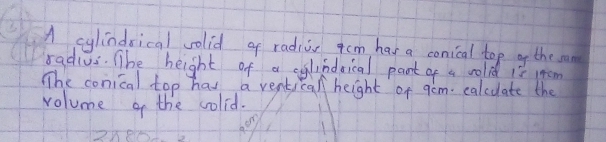 A cylindrical solid of radius 7cm has a conical top of the same
radius. The height of a cylindrical part of a solid is 14cm
The conical top has a vertical height of 9cm. calculate the
volume of the solid.
9cm